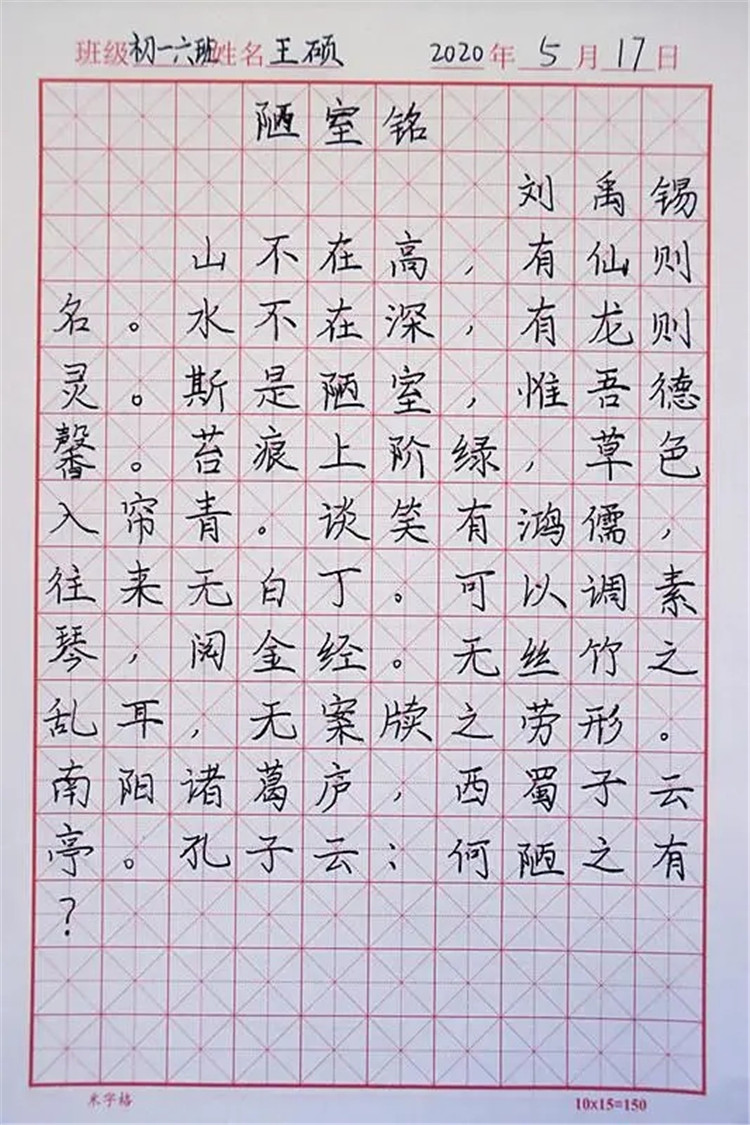 班级初一六班姓名王硕 2020年5月17日
陋室铭
刘禹锡
山不在高,有仙则
名。水不在深,有龙则
灵。斯是陋室,惟吾德
馨。苔痕上阶绿,草色
入帘青。谈笑有鸿儒,
往来无白丁。可以调素
琴,阅金经。无丝竹之
乱耳,无案牍之劳形。
南阳诸葛庐,西蜀子云
亭。孔子云:何陋之有
?
米字格 10x15=150